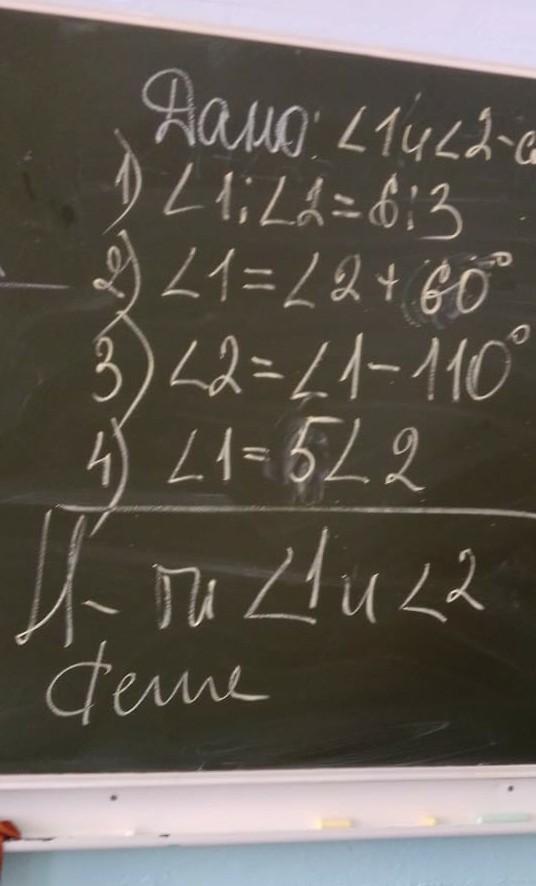 Дано: ∠1 и ∠2 - с
1) ∠1 : ∠2 = 6 : 3
2) ∠1 = ∠2 + 60°
3) ∠2 = ∠1 - 110°
4) ∠1 = 5∠2
Н- ти ∠1 и ∠2